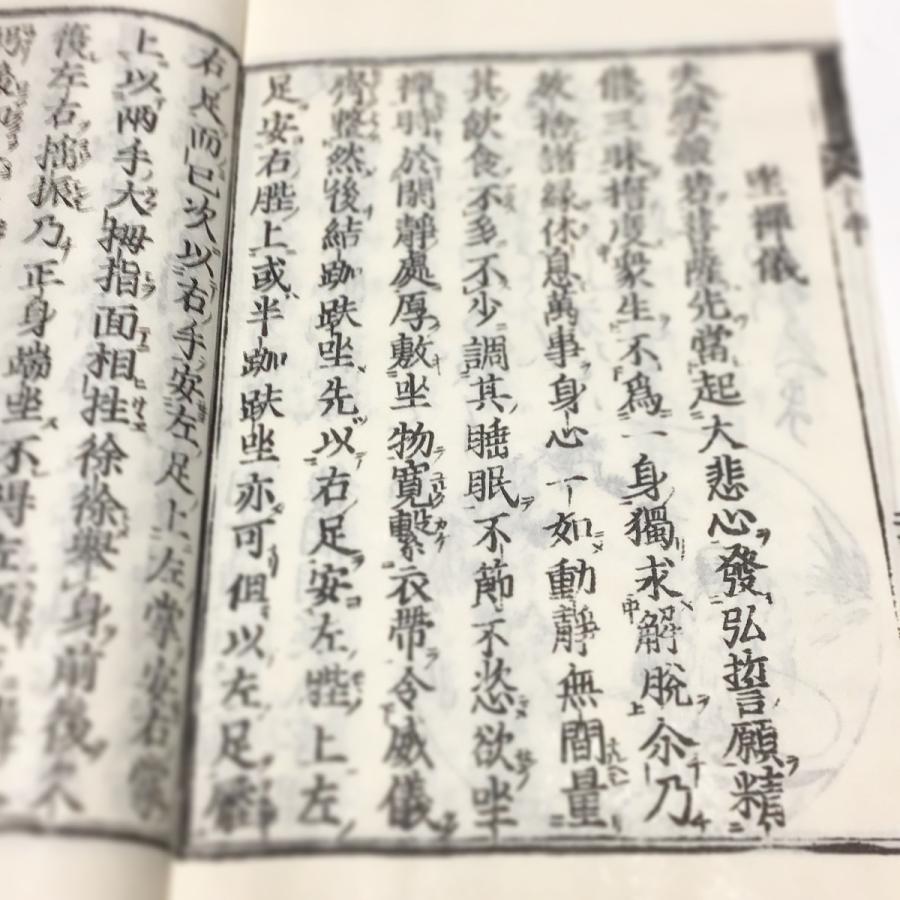 坐禪儀
夫學般若菩薩先當起大悲心發弘誓願精
修三昧擔度衆生不爲一身獨求解脫尒乃
放捨諸緣休息萬事身心一如動靜無間量
其飲食不多不少調其睡眠不節不恣欲坐
禪時於閑靜處厚敷坐物寬繫衣帶令威儀
齊整然後結跏趺坐先以右足安左䏶上左
足安右䏶上或半跏趺坐亦可但以左足壓
右足而已次以右手安左足上左掌安右掌
上以兩手大拇指面相拄徐徐擧身前後
復左右搖振乃正身端坐不得左